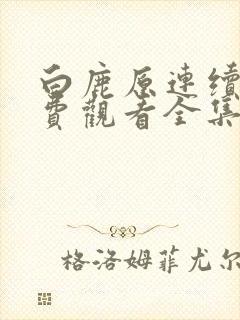 白鹿原連續
費觀看全集
格洛姆菲尤尔